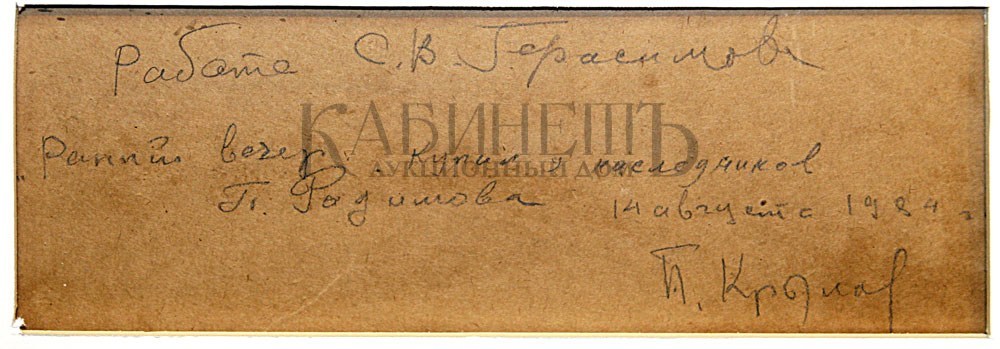 Работа С.В. Герасимова
КАБИНЕТЪ
АУКЦИОННЫЙ ДОМ
„Ранний вечер". Купил у наследников
П. Родимова 14 августа 1984 г.
П. Крылов